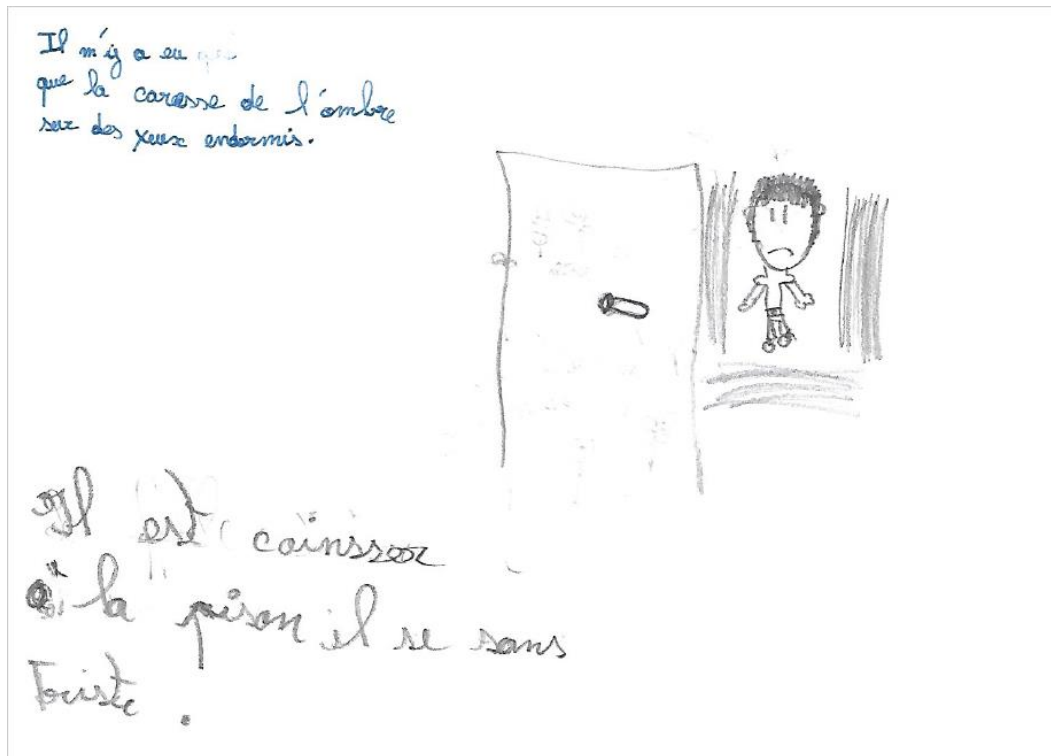 Il m'y a eu
que la caresse de l'ombre
sur des yeux endormis.
Il est coinsser
à la pison il se sans
Triste.